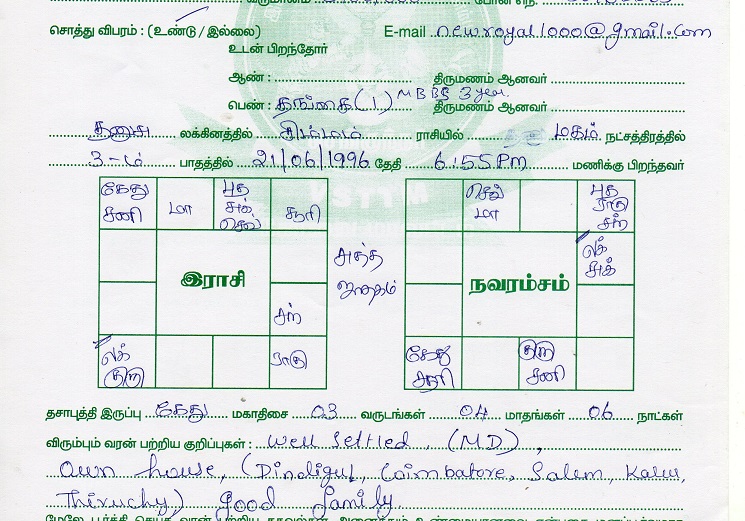 சொத்து விபரம் : (உண்டு / இல்லை) E-mail newroyal1000@gmail.com
உடன் பிறந்தோர்
ஆண் : திருமணம் ஆனவர்
பெண் : தங்கை (1) MBBS 3 year. திருமணம் ஆனவர்
தனுசு லக்கினத்தில் சிம்மம் ராசியில் மகம் நட்சத்திரத்தில்
3-ம் பாதத்தில் 21/06/1996 தேதி 6:55 Pm மணிக்கு பிறந்தவர்
கேது சனி
மா
புத சுக் செவ்
சூரி
இராசி
சந்
லக் குரு
ராகு
சுத்த ஜாதகம்
செவ் மா
புத ராகு சந்
லக் சுக்
நவரம்சம்
கேது சூரி
குரு சனி
தசாபுத்தி இருப்பு கேது மகாதிசை 03 வருடங்கள் 04 மாதங்கள் 06 நாட்கள்
விரும்பும் வரன் பற்றிய குறிப்புகள் : Well Settled, (MD),
Own house, (Dindigul, Coimbatore, Salem, Karur,
Thiruchy) good family